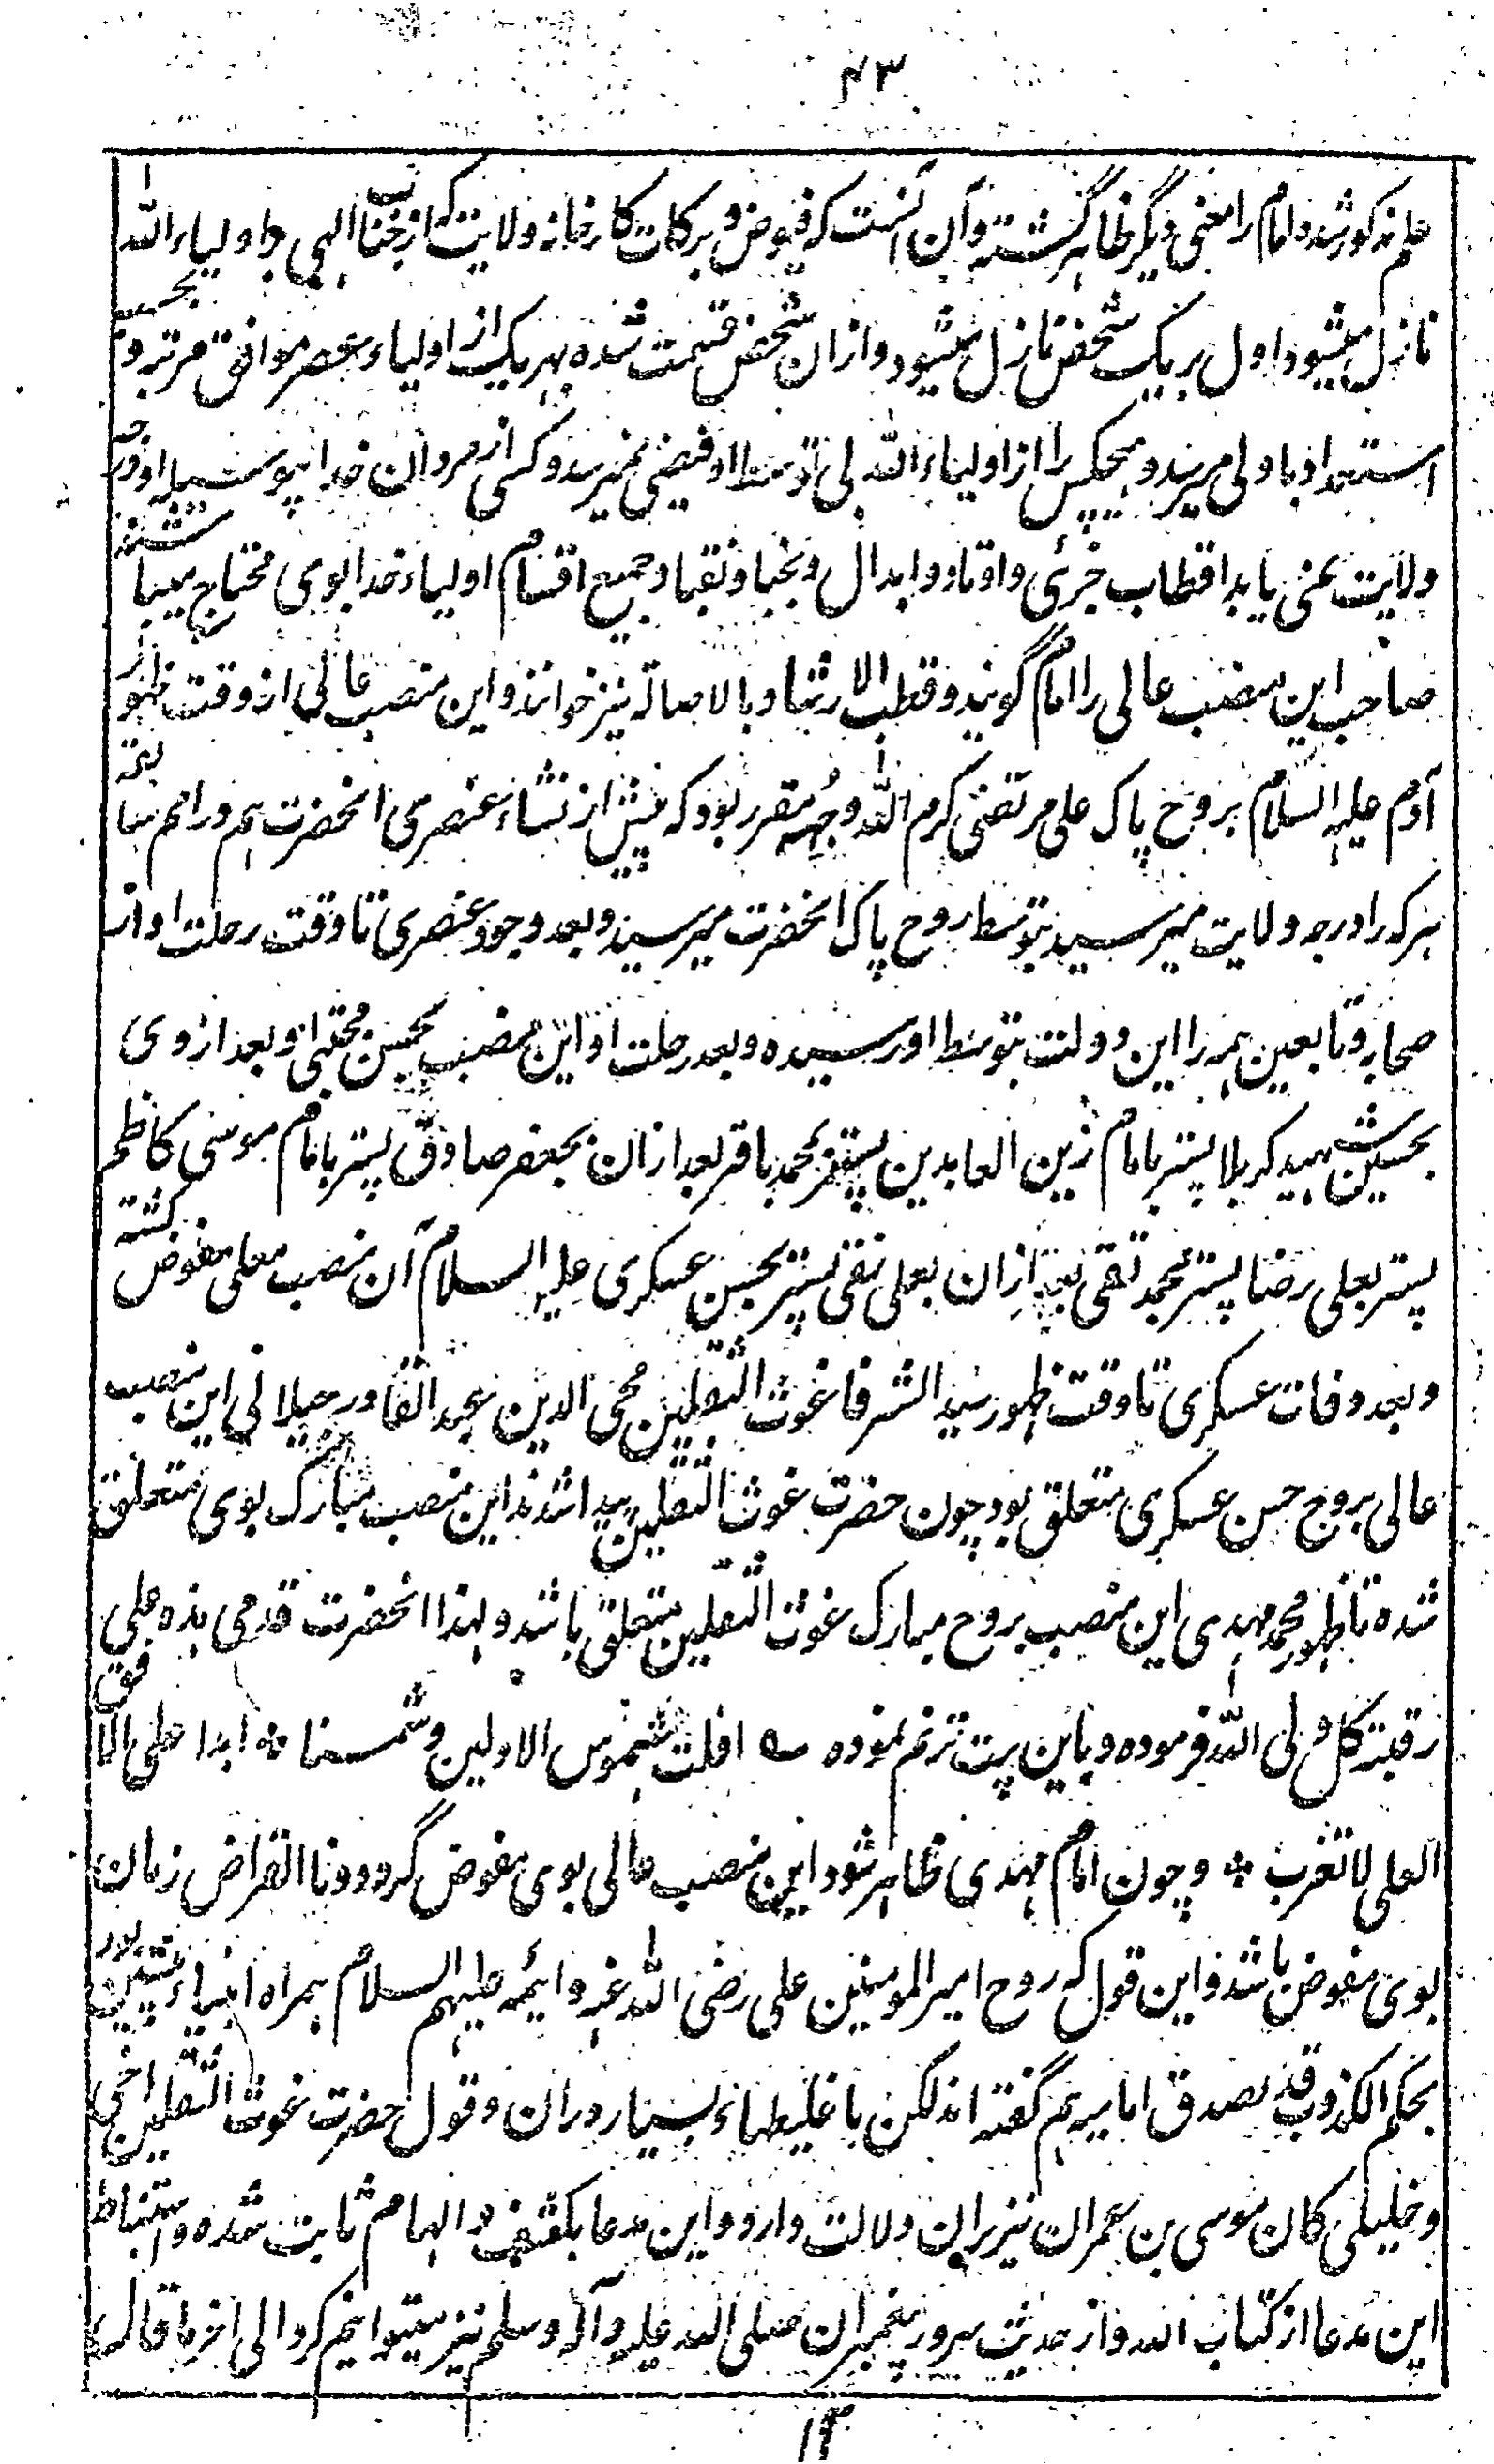 ۴۳
علم مذکور شد و امام را معنی دیگر ظاهر گشته و آن آنست که فیوض و برکات کارخانه ولایت که از جناب الهی بر اولیاء الله
نازل میشود اول بر یک شخص نازل میشود و ازان شخص قسمت شده بهر یک از اولیاء عصر موافق مرتبه و بحسب
استعداد باو لی میرسد و هیچکس را از اولیاء الله بی توسط او فیضی نمیرسد و کسی از مردان خدا بیوسیله او درجه
ولایت نمی یابد اقطاب جزئی و اوتاد و ابدال و نجبا و نقبا و جمیع اقسام اولیاء خدا بوی محتاج میباشند
صاحب این منصب عالی را امام گویند و قطب الارشاد بالاصالة نیز خوانند و این منصب عالی از وقت ظهور
آدم علیه السلام بروح پاک علی مرتضی کرم الله وجهه مقرر بود که پیش از نشاء عنصری آنحضرت هم در امم سابقه
هرکه را درجه ولایت میرسید بتوسط روح پاک آنحضرت میرسید و بعد وجود عنصری تا وقت رحلت او از
صحابه و تابعین همه را این دولت بتوسط او رسیده و بعد رحلت او این منصب بحسن مجتبی و بعد از وی
بحسین شهید کربلا پستر بامام زین العابدین پستر بمحمد باقر بعد ازان بجعفر صادق پستر بامام موسی کاظم
پستر بعلی رضا پستر بمحمد تقی بعد ازان بعلی نقی پستر بحسن عسکری علیه السلام آن منصب معلی مفوض گشته
و بعد وفات عسکری تا وقت ظهور سید الشرفا غوث الثقلین محی الدین عبد القادر جیلانی این منصب
عالی بروح حسن عسکری متعلق بود چون حضرت غوث الثقلین پیدا شدند این منصب مبارک بوی متعلق
شده تا ظهور محمد مهدی این منصب بروح مبارک غوث الثقلین متعلق باشد و لهذا آنحضرت قدمی هذه علی
رقبة کل ولی الله فرموده و باین بیت ترنم نموده افلت شموس الاولین و شمسنا * ابدا علی الافق
العلی لا تغرب * و چون امام مهدی ظاهر شود این منصب عالی بوی مفوض گردد و تا انقراض زمان
بوی مفوض باشد و این قول که روح امیر المومنین علی رضی الله عنه و ائمه علیهم السلام همراه انبیاء پیشین بود
بحکم الکذوب قد یصدق امامیه هم گفته اند لکن با غلیطهاء بسیار دران و قول حضرت غوث الثقلین اخی
و خلیلی کان موسی بن عمران نیز بران دلالت دارد و این مدعا بکشف و الهام ثابت شده و استنباط
این مدعا از کتاب الله و از حدیث سرور پیغمبران صلی الله علیه و آله و سلم نیز میتوانیم کرد الی آخر ما قاله
۱۳